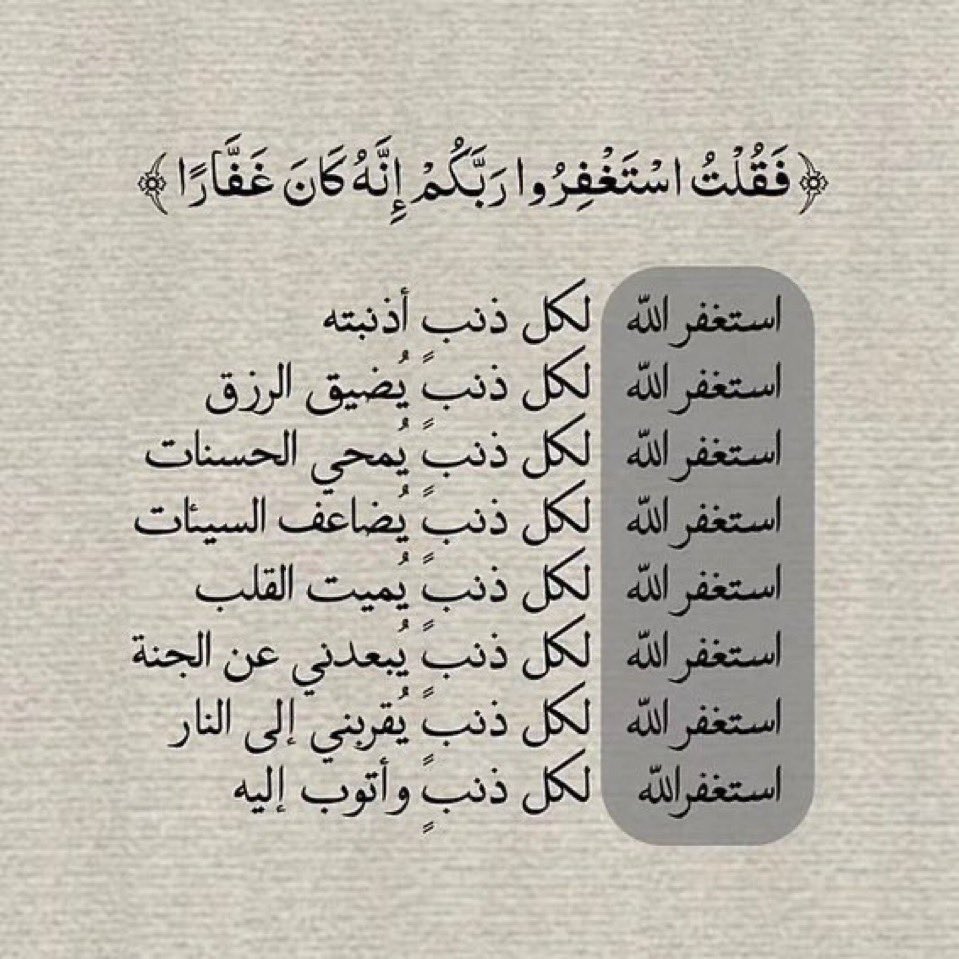 ﴿فَقُلْتُ اسْتَغْفِرُوا رَبَّكُمْ إِنَّهُ كَانَ غَفَّارًا﴾
استغفر الله لكل ذنب أذنبته
استغفر الله لكل ذنبٍ يُضيق الرزق
استغفر الله لكل ذنبٍ يُمحي الحسنات
استغفر الله لكل ذنبٍ يُضاعف السيئات
استغفر الله لكل ذنبٍ يُميت القلب
استغفر الله لكل ذنبٍ يُبعدني عن الجنة
استغفر الله لكل ذنبٍ يُقربني إلى النار
استغفرالله لكل ذنبٍ وأتوب إليه